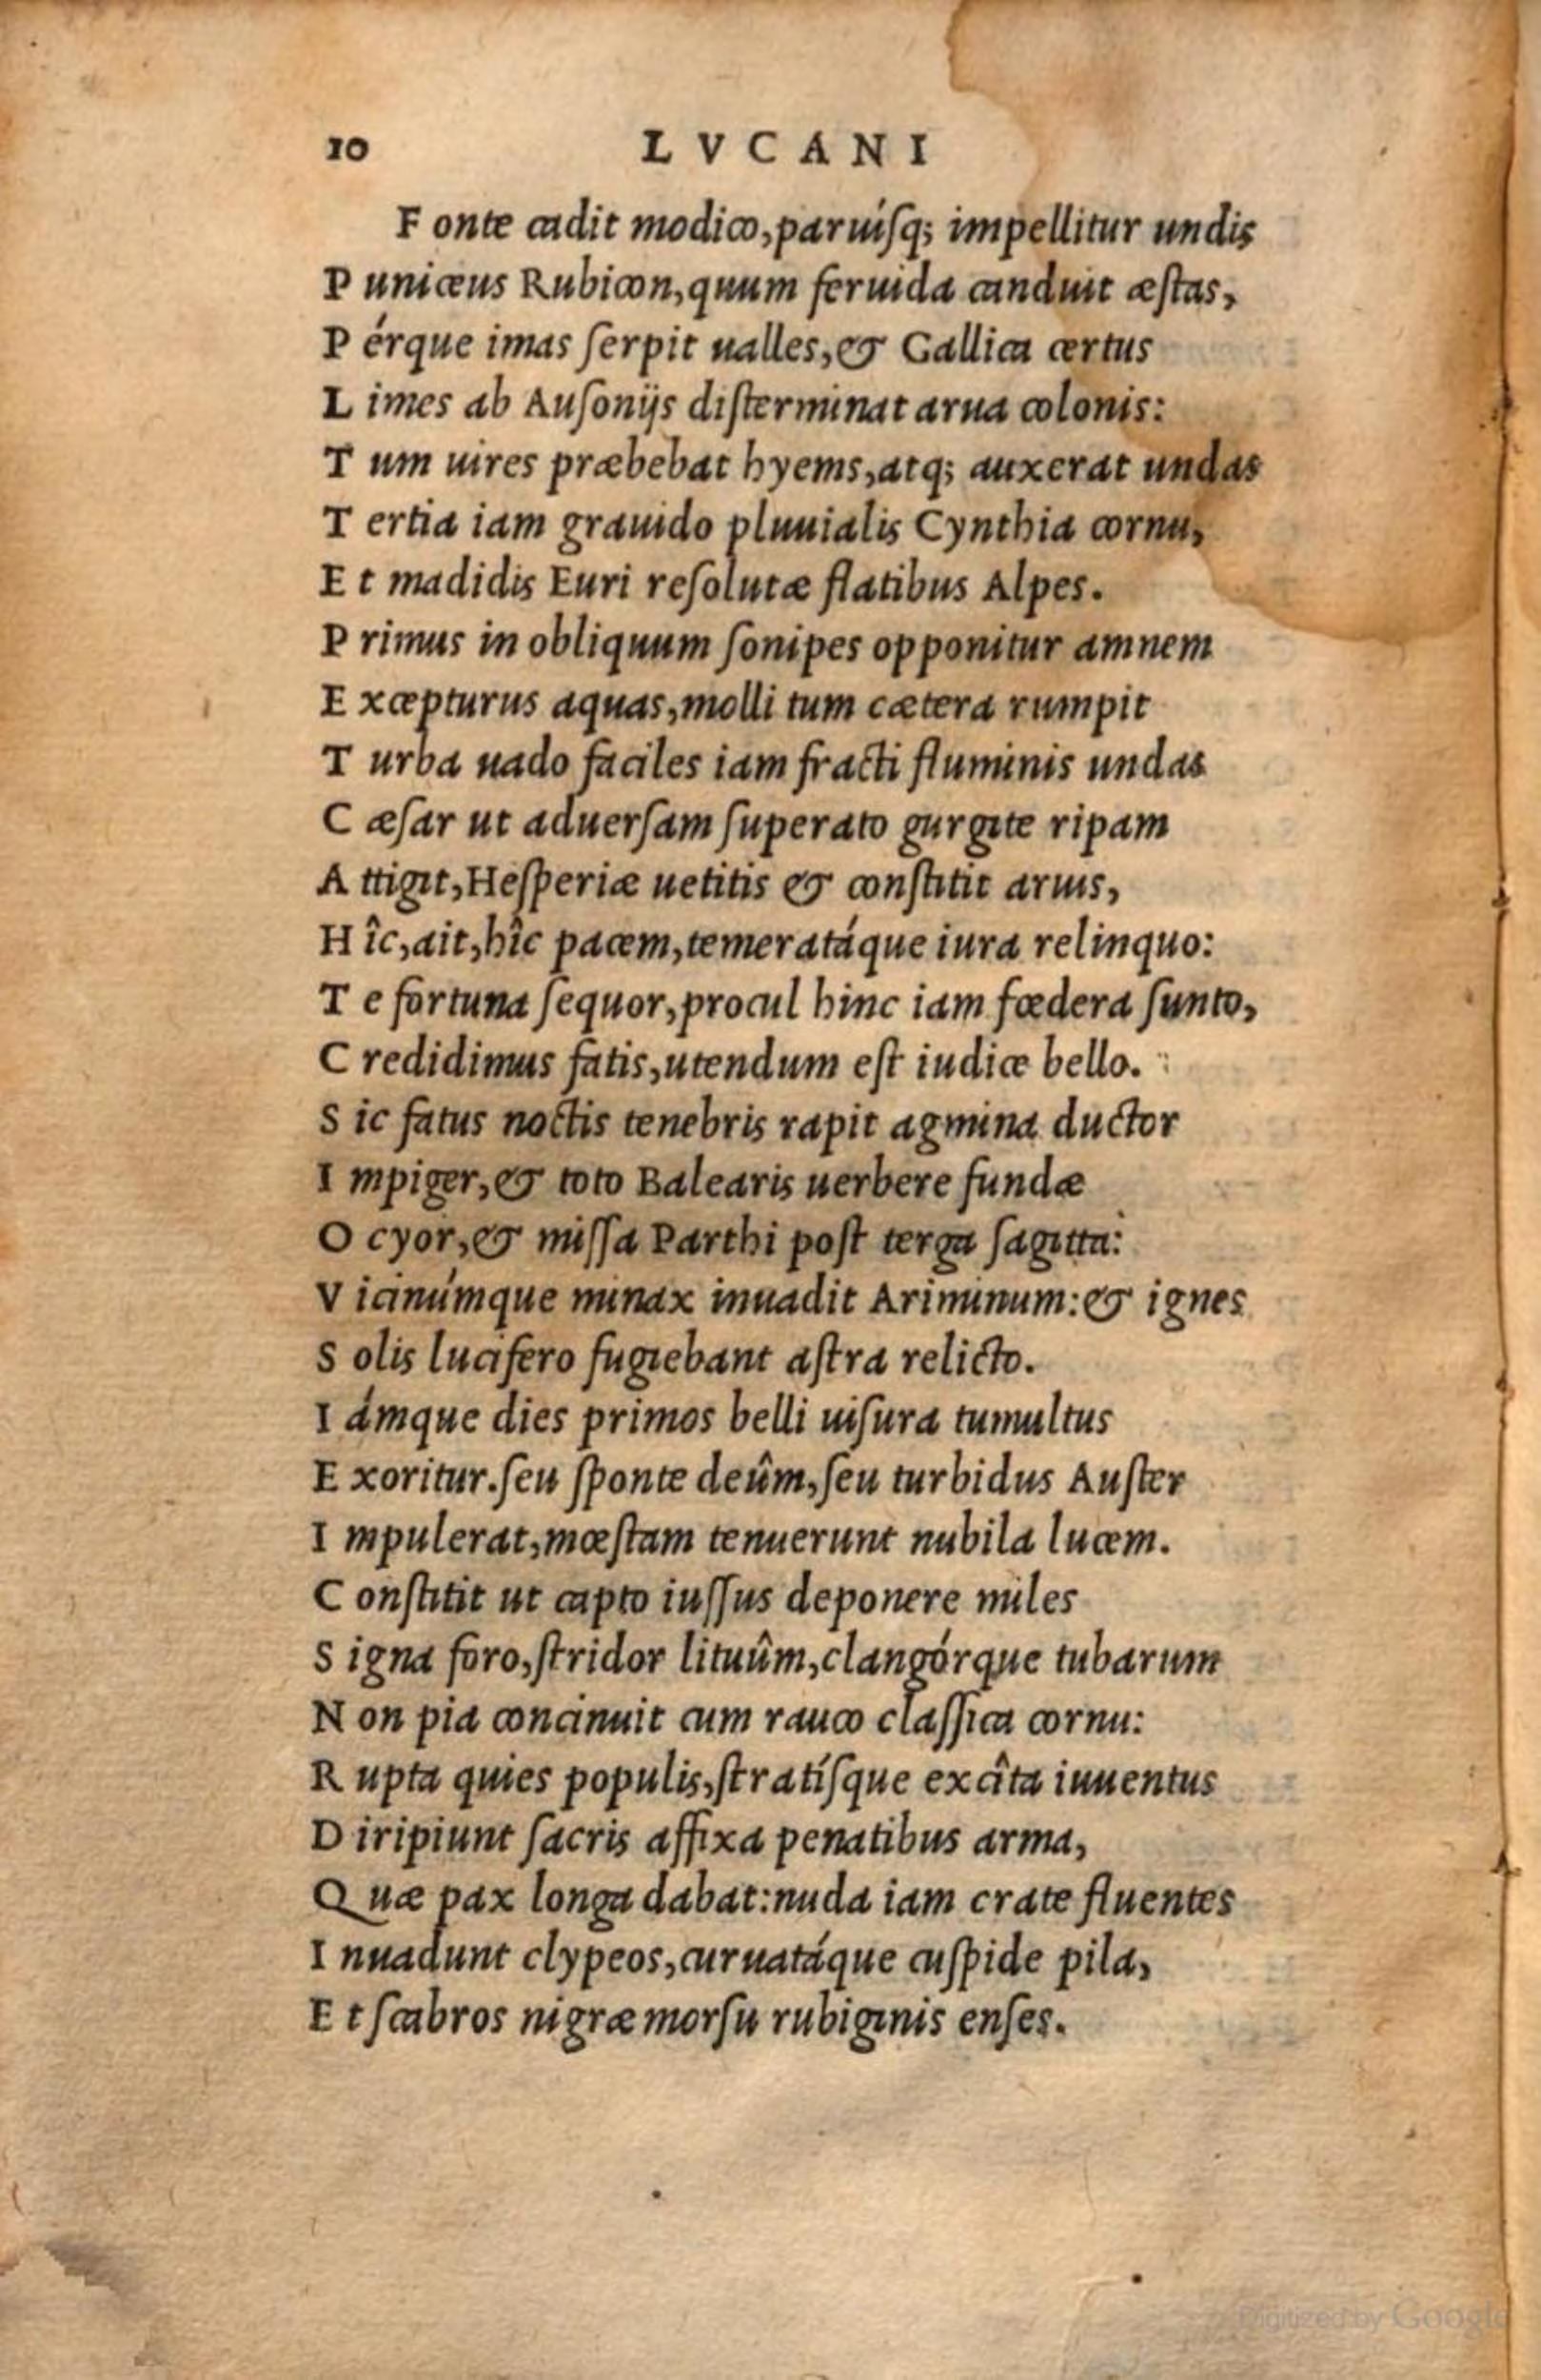 10 LVCANI
F onte cadit modico,paruíſq; impellitur undis
P uniceus Rubicon,quum feruida canduit æſtas,
P érque imas ſerpit ualles,& Gallica certus
L imes ab Auſonijs diſterminat arua colonis:
T um uires præbebat hyems,atq; auxerat undas
T ertia iam grauido pluuialis Cynthia cornu,
E t madidis Euri reſolutæ flatibus Alpes.
P rimus in obliquum ſonipes opponitur amnem
E xcepturus aquas,molli tum cætera rumpit
T urba uado faciles iam fracti fluminis undas
C æſar ut aduerſam ſuperato gurgite ripam
A ttigit,Heſperiæ uetitis & conſtitit aruis,
H îc,ait,hîc pacem,temeratáque iura relinquo:
T e fortuna ſequor,procul hinc iam fœdera ſunto,
C redidimus fatis,utendum eſt iudice bello.
S ic fatus noctis tenebris rapit agmina ductor
I mpiger,& toto Balearis uerbere fundæ
O cyor,& miſſa Parthi poſt terga ſagitta:
V icinúmque minax inuadit Ariminum:& ignes
S olis lucifero fugiebant aſtra relicto.
I ámque dies primos belli uiſura tumultus
E xoritur.ſeu ſponte deûm,ſeu turbidus Auſter
I mpulerat,mœſtam tenuerunt nubila lucem.
C onſtitit ut capto iuſſus deponere miles
S igna foro,ſtridor lituûm,clangórque tubarum
N on pia concinuit cum rauco claſſica cornu:
R upta quies populis,ſtratíſque excîta iuuentus
D iripiunt ſacris affixa penatibus arma,
Q uæ pax longa dabat:nuda iam crate fluentes
I nuadunt clypeos,curuatáque cuſpide pila,
E t ſcabros nigræ morſu rubiginis enſes.
Digitized by Google